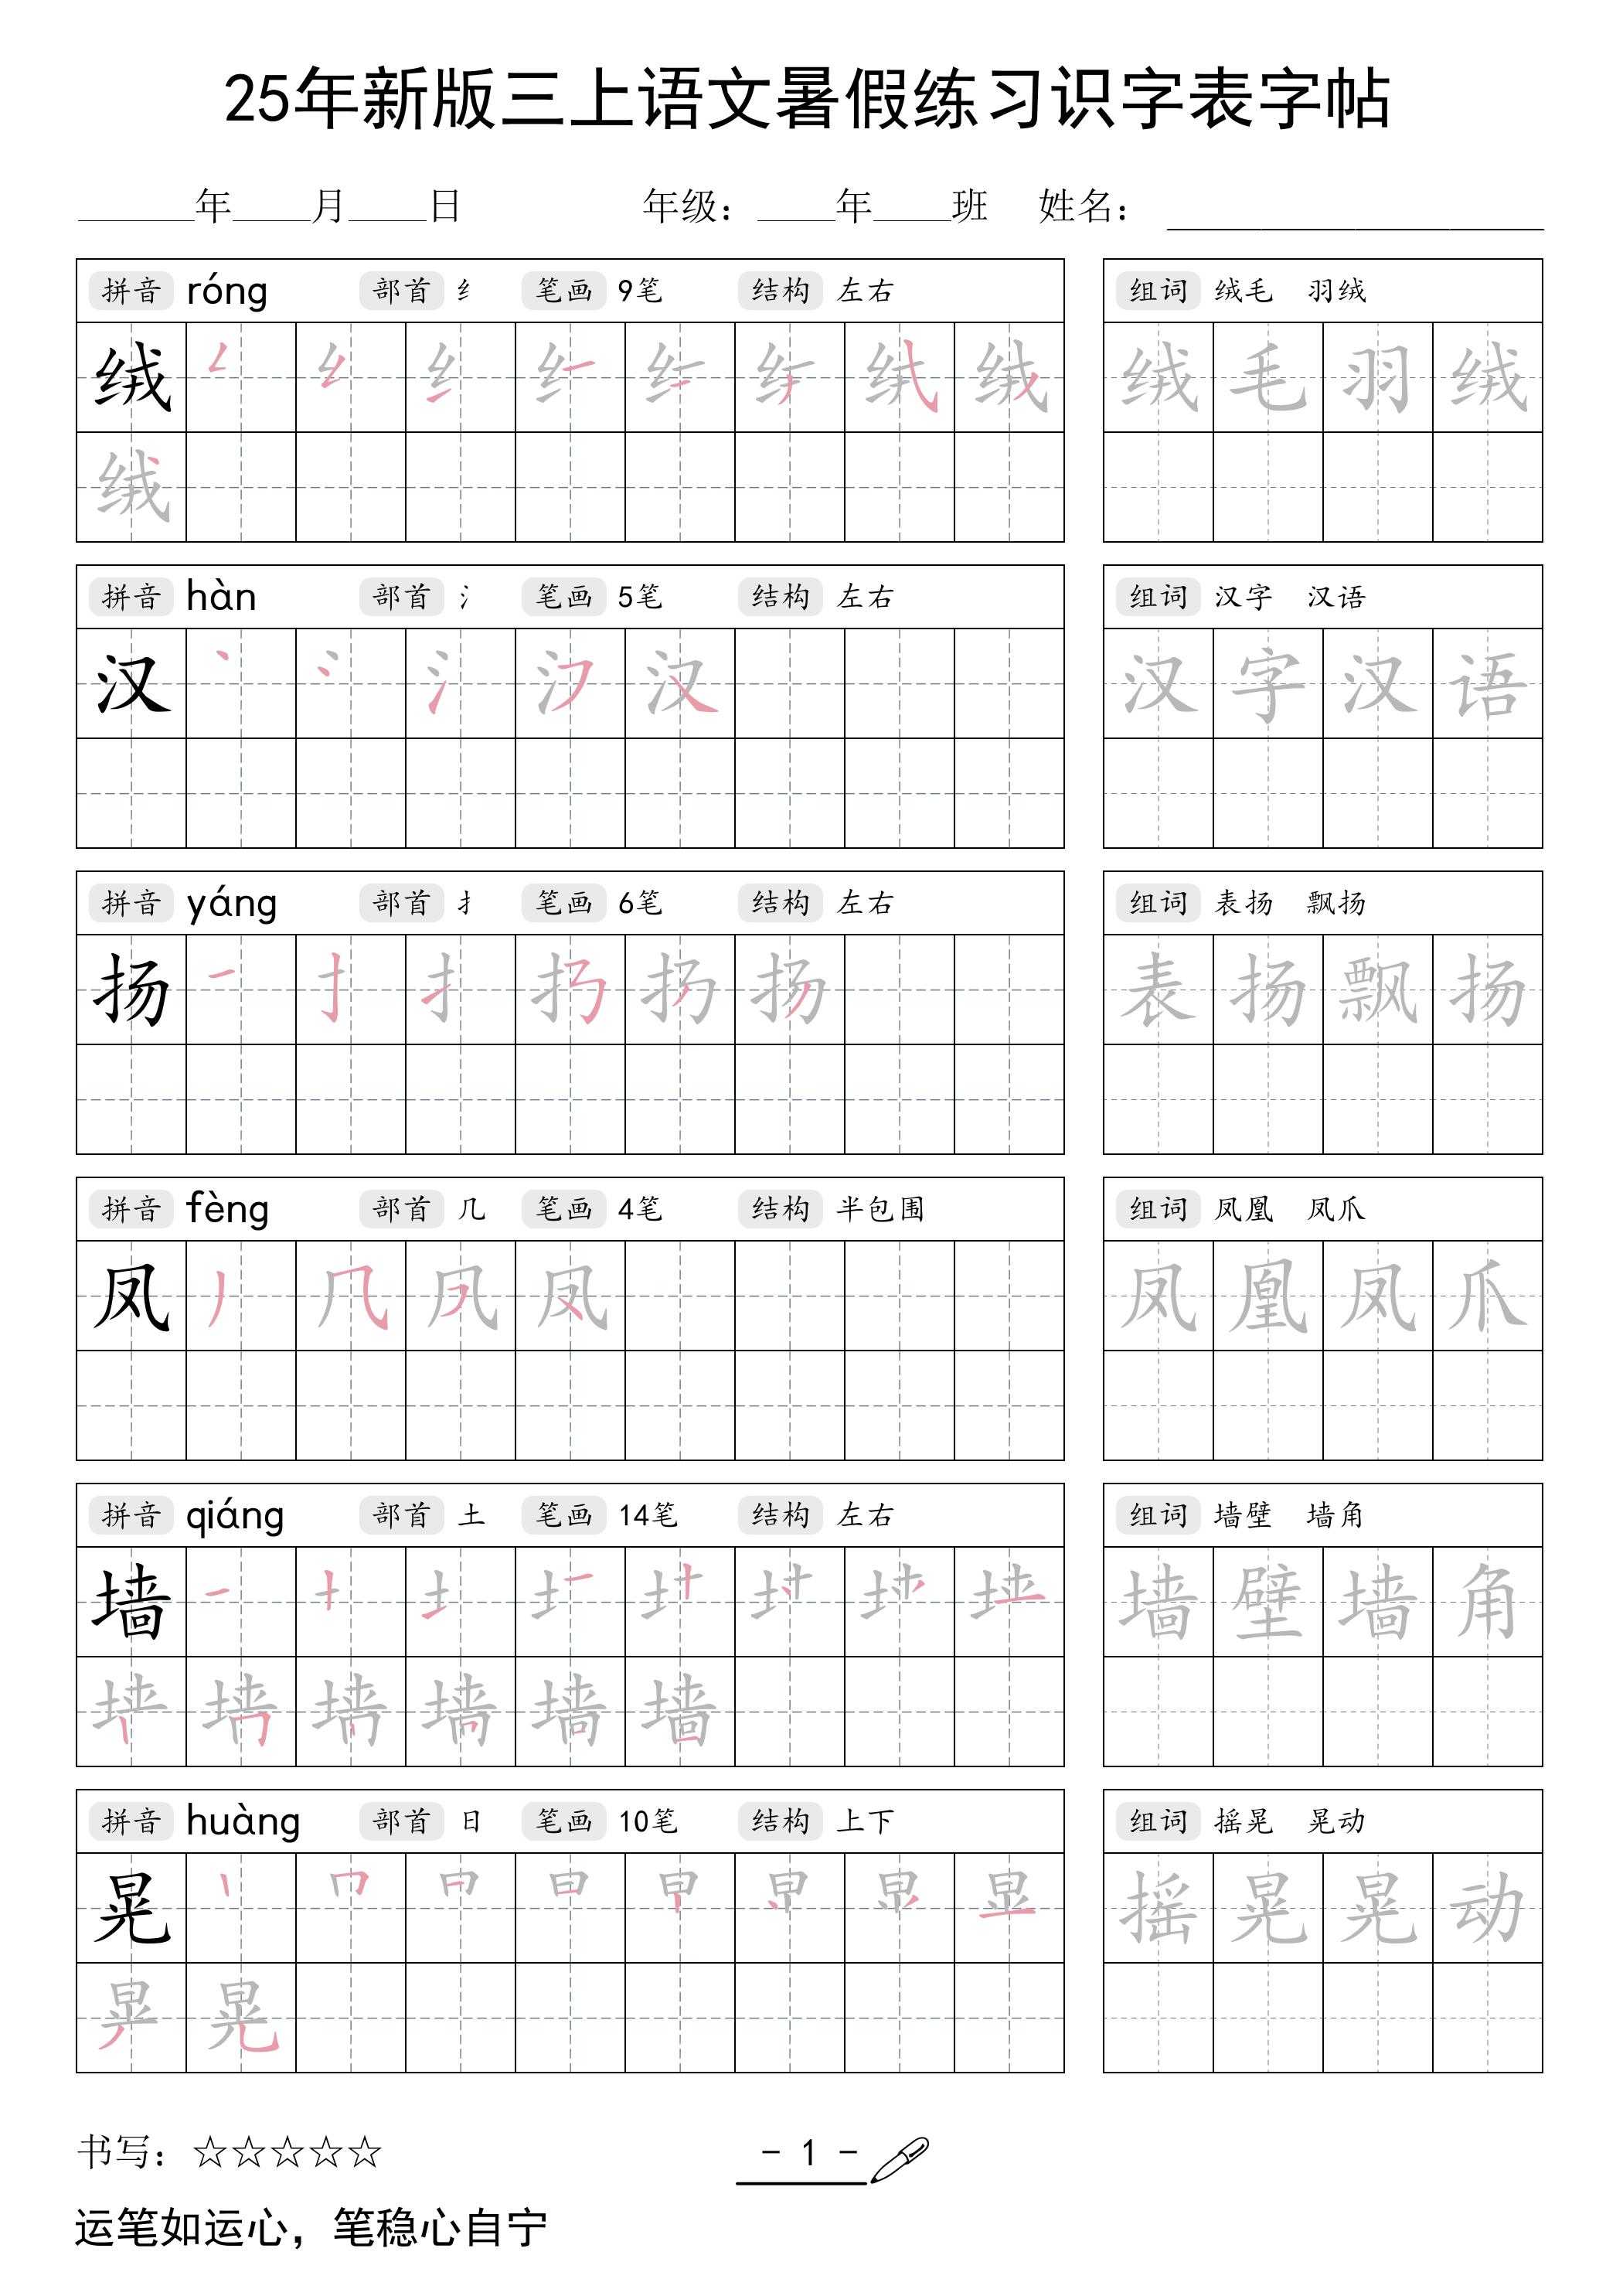 25年新版三上语文暑假练习识字表字帖
______年____月____日 年级：____年____班 姓名：____
拼音 róng 部首 纟 笔画 9笔 结构 左右 组词 绒毛 羽绒
绒 绒毛羽绒
绒
拼音 hàn 部首 氵 笔画 5笔 结构 左右 组词 汉字 汉语
汉 汉字汉语
拼音 yáng 部首 扌 笔画 6笔 结构 左右 组词 表扬 飘扬
扬 表扬飘扬
拼音 fèng 部首 几 笔画 4笔 结构 半包围 组词 凤凰 凤爪
凤 凤凰凤爪
拼音 qiáng 部首 土 笔画 14笔 结构 左右 组词 墙壁 墙角
墙 墙壁墙角
墙
拼音 huàng 部首 日 笔画 10笔 结构 上下 组词 摇晃 晃动
晃 摇晃晃动
晃
书写：☆☆☆☆☆ - 1 -
运笔如运心，笔稳心自宁